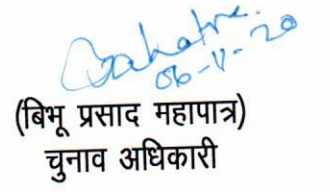 06-11-20
(बिभू प्रसाद महापात्र)
चुनाव अधिकारी